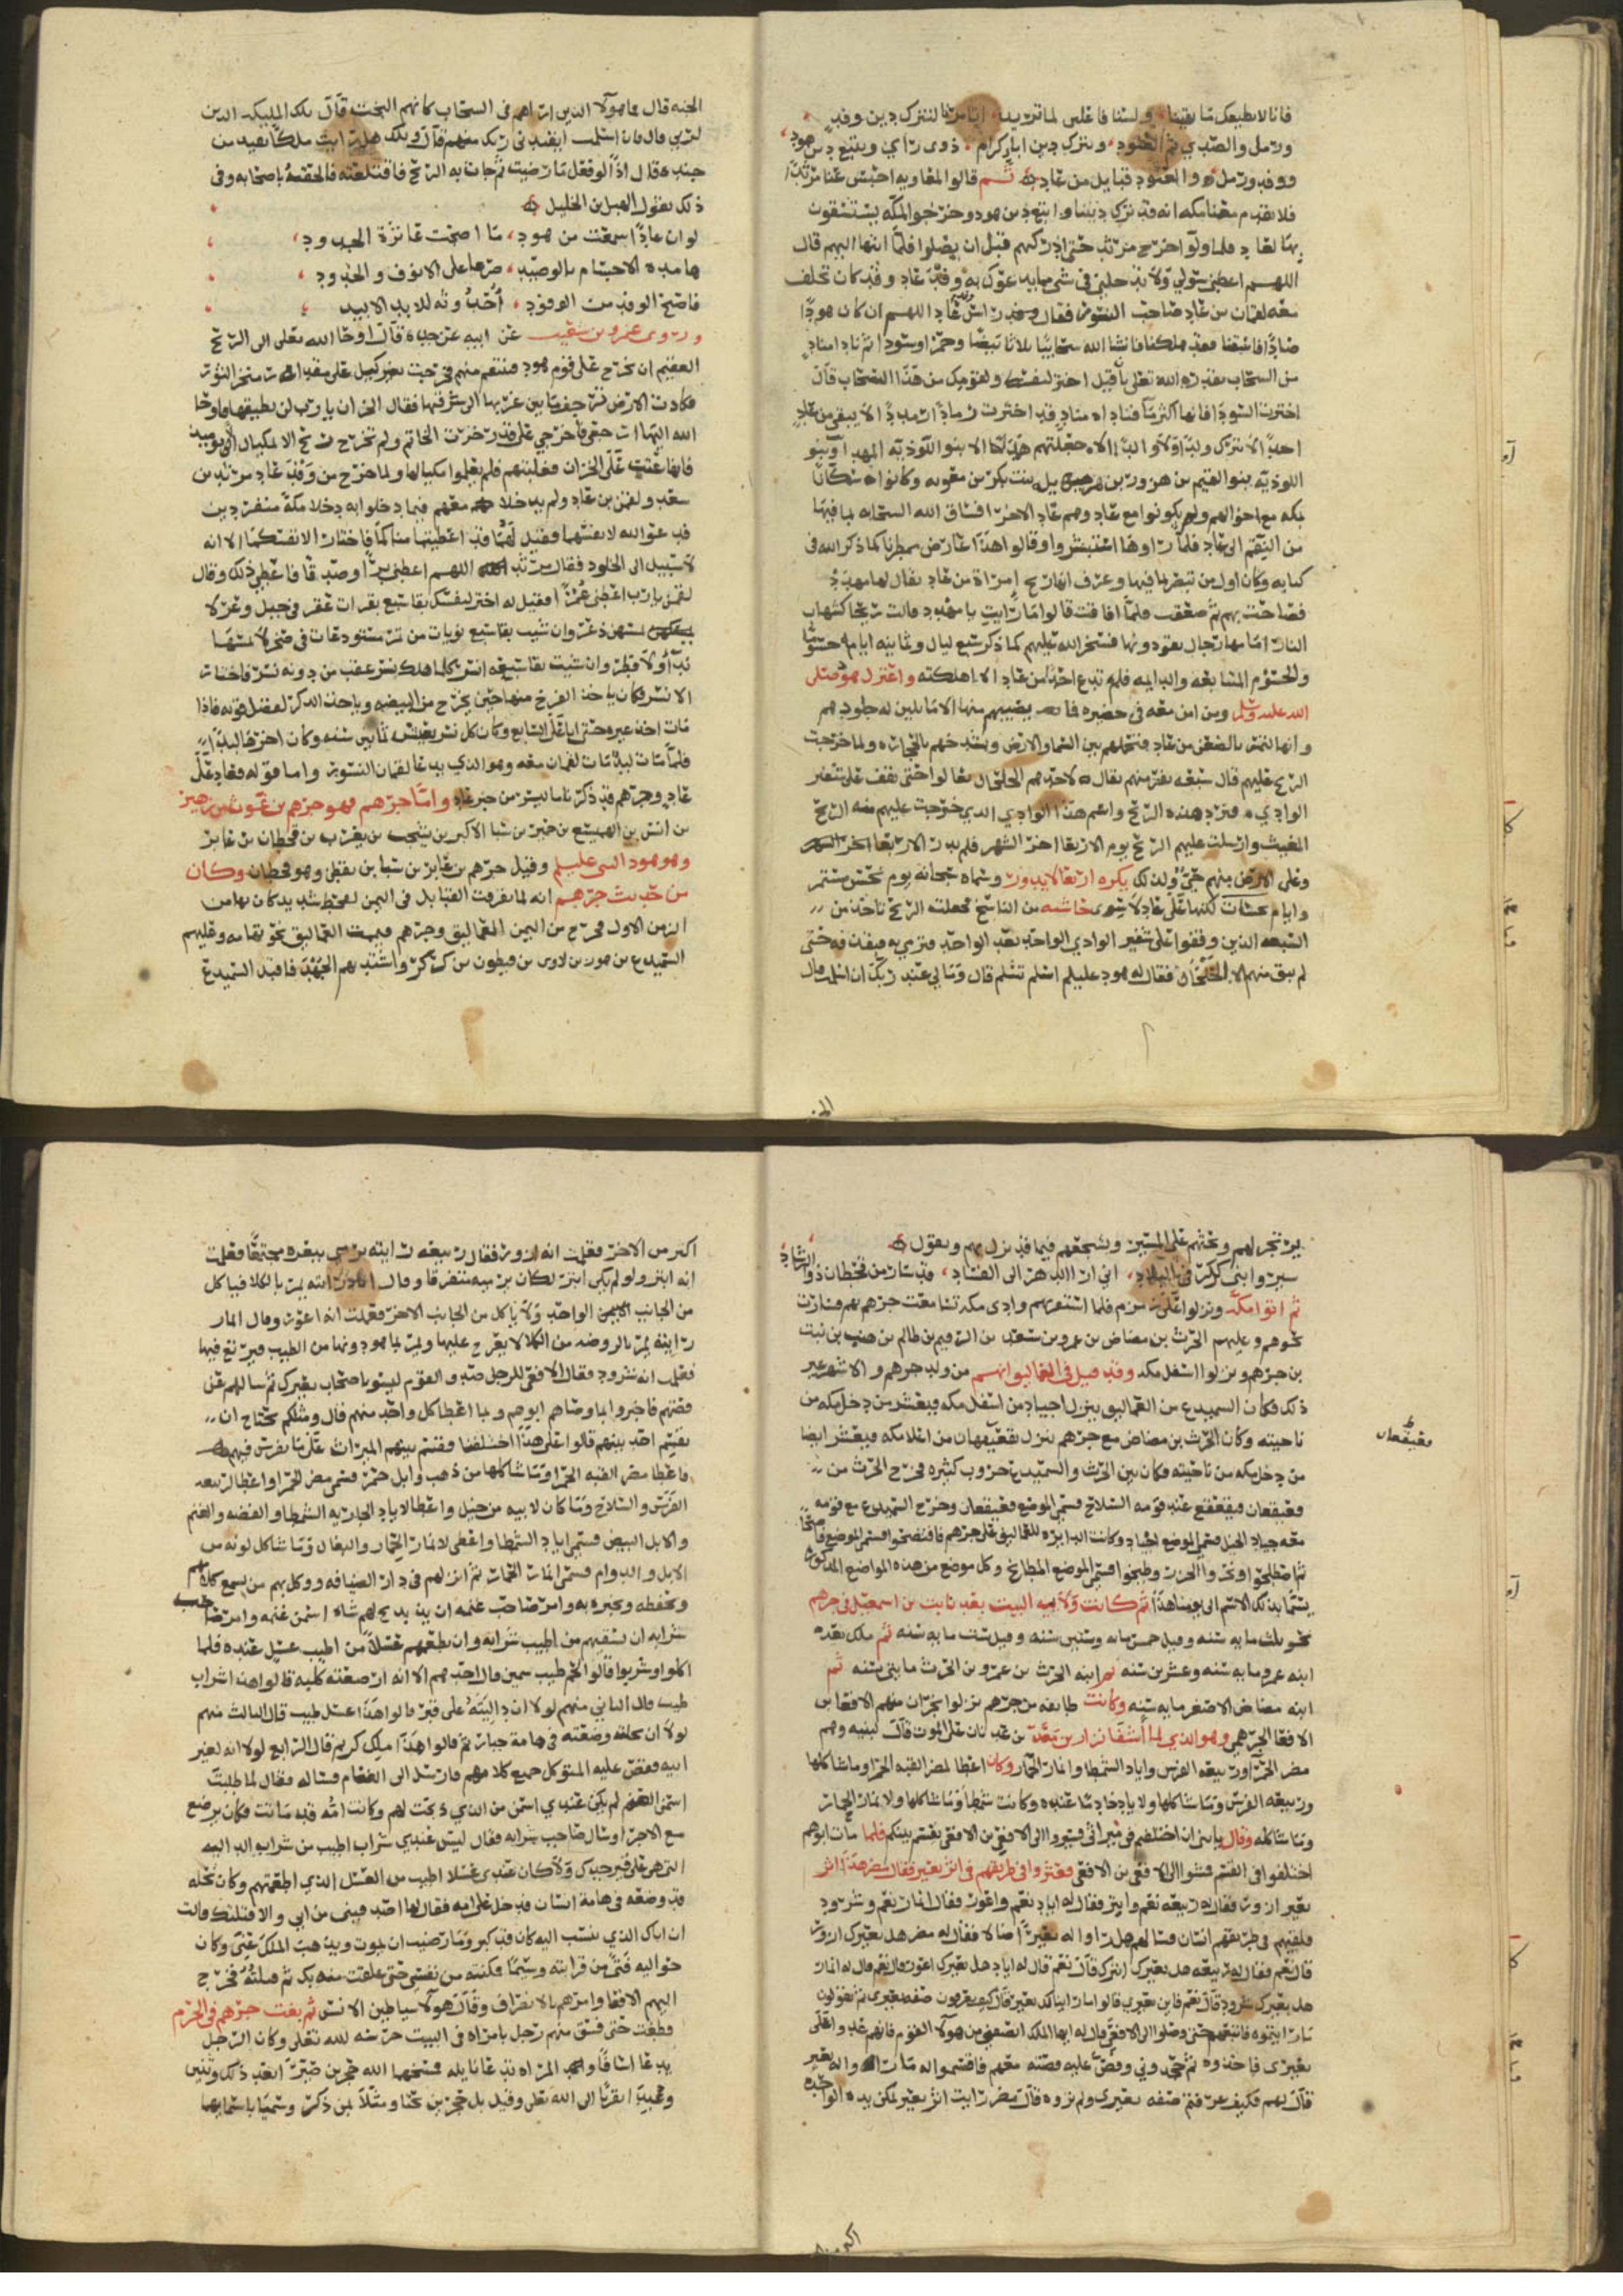 فانا لا نطيعك ما بقينا ولسنا فاعلين لما تريد
ورمل والصدي ثم العنود ونترك دين اباء كرام ذوى راي ونتبع دين هود
ووفد ورمل والعنود قبايل من عاد ثم قالوا لمعاويه احبس عنا مرثدا
فلا يقدم معنا مكه انه قد ترك ديننا واتبع دين هود وخرجوا الى مكة يستسقون
بها لعاد فلما ولوا خرج مرثد حتى ادركهم قبل ان يصلوا فلما انتها اليهم قال
اللهم اعطني سولي ولا تدخلني في شي مما يدعوك به وفد عاد وقد كان تخلف
معه لقمان من عاد صاحب النسور فقال وفد راس عاد اللهم ان كان هودا
صادقا فاسقنا فقد هلكنا فانشا الله سحايبا ثلاثا بيضا وحمرا وسودا ثم نادا مناد
من السحاب بقدرة الله تعلى يا قيل اختر لنفسك ولقومك من هذا السحاب قال
اخترت السودا فانها اكثر ما فناداه مناد قد اخترت رمادا رمددا لا يبقى من عاد
احدا لا يترك ولدا ولا والدا الا جعلتهم همدا الا بنو اللوذيه المهدا وبنو
اللوذيه بنو القيم بن هزور بن هزيل بنت بكر من معويه وكانوا سكانا
بمكه مع اخوالهم ولم يكونوا مع عاد وهم عاد الاخرا فساق الله السحابه لما فيها
من النقم الى عاد فلما راوها استبشروا وقالوا هذا عارض ممطرنا كما ذكر الله في
كتابه وكان اول من تبصر ما فيها وعرف انها ريح امراة من عاد يقال لها مهدد
فصاحت بهم ثم صعقت فلما افاقت قالوا ما رايت يا مهدد قالت ريحا كشهاب
النار امامها رجال يقودونها فسخر الله عليهم كما ذكر سبع ليال وثمانيه ايام حسوما
والحسوم المتتابعه والدايمه فلم تدع احدا من عاد الا اهلكته واعتزل هود صلى
الله عليه وسلم ومن امن معه في حضيره ما يصيبهم منها الا ما تلين له جلودهم
وانها لتمر بالضعن من عاد فتحملهم بين السما والارض وتشدخهم بالحجاره ولما خرجت
الريح عليهم قال سبعه نفر منهم يقال لاحدهم الخلجان تعالوا حتى نقف على شفير
الوادي فنرد هذه الريح واسم هذا الوادي الذي خرجت عليهم منه الريح
المغيث وارسلت عليهم الريح يوم الاربعا اخر الشهر فلم يدر الاربعا اخر الشهر
وعلى الارض منهم حي ولذلك يكره اربعا لا يدور وسماه سبحانه يوم نحس مستمر
السبعه الذين وقفوا على شفير الوادي الواحد بعد الواحد فترمي به فيندق حتى
لم يبق منهم الا الخلجان فقال له هود عليلم اسلم تسلم قال ومالي عند ربك ان اسلمت قال
الجنه قال فما هولا الذين اراهم في السحاب كانهم البخت قال تلك الملايكه الذين
لربي قال فان اسلمت ايقيدني ربك منهم قال ويلك هل رايت ملكا يقيد من
جنده قال اذا لو فعل ما رضيت ثم جات به الريح فاقتلعته فالحقته باصحابه وفي
ذلك يقول المهيل بن الخليل
لو ان عادا سمعت من هود ما اصبحت عاثرة الجدود
هامده الاجسام بالوصيد صرعا على الانوف والخدود
فاصبح الوفد من الوفود احدوثه للابد الابيد
وروى عمرو بن شعيب عن ابيه عن جده قال اوحا الله تعلى الى الريح
العقيم ان تخرج على قوم هود فتنتقم منهم فخرجت بغير كيل على مقدار منخر الثور
فكادت الارض ترجف ما بين غربها الى شرقها فقال الخزان يا رب لن نطيقها فاوحا
الله اليها ان حقي فاخرجي على قدر خرت الخاتم ولم تخرج ريح الا بمكيال الا يوميذ
فانها عتت على الخزان فغلبتهم فلم يعلموا مكيالها ولما خرج من وفد عاد مرثد بن
سعد ولقمن بن عاد ولم يدخلا معهم فيما دخلوا به دخلا مكة منفردين
فدعوا الله لانفسهما فقيل لهما قد اعطيتما مناكما فاختارا لانفسكما الا انه
لا سبيل الى الخلود فقال مرثد اللهم اعطني برا وصدقا فاعطي ذلك وقال
لقمن يا رب اعطني عمرا فقيل له اختر لنفسك بقا سبع بقرات عفر في جبل وعر لا
يمسهن ذعر وان شيت بقا سبع نويات من تمر مستودعات في صخر لا يمسها
ندا ولا قطر وان شيت بقا سبعه انسر كلما هلك نسر عقب من دونه نسر فاختار
الانسر فكان ياخذ الفرخ منها حين يخرج من البيضه وياخذ الذكر لفضل قوته فاذا
مات اخذ غيره حتى اتا على السابع وكان كل نسر يعيش ثمانين سنه وكان اخرها لبدا
فلما مات لبد مات لقمان معه وهو الذي يدعا لقمان النسور واما قوله فعاد على
عاد وجرهم قد ذكرنا ما تيسر من خبر عاد واما جرهم فهو جرهم بن غوث بن حمير
بن انس بن الهميسع بن حمير بن سبا الاكبر بن يشجب بن يعرب بن قحطان بن عابر
وهو هود النبي عليلم وقيل جرهم بن عابر بن سبا بن يقطن وهو قحطان وكان
من حديث جرهم انه لما تفرقت القبايل في اليمن لقحط شديد كان بها من
الزمن الاول خرج من اليمن العماليق وجرهم فيممت العماليق نحو تهامه وعليهم
السميدع بن هود بن لاوى بن قيطون بن كركر واشتد بهم الجهد فاقبل السميدع
يرتجز لهم ويحثهم على المسير ويشجعهم فيما قد نزل بهم ويقول
سيروا بني كركر في البلاد اني ارا الدهر الى الفساد قد سار من قحطان ذو الرشاد
ثم اتوا مكه ونزلوا على زمزم فلما استقر بهم وادى مكه تسامعت جرهم بهم فسارت
نحوهم وعليهم الحرث بن مضاض بن عمرو بن سعد بن الرقيم بن ظالم بن هيى بن نبت
بن جرهم ونزلوا اسفل مكه وقد قيل في العماليق انهم من ولد جرهم والاشهر غير
ذلك فكان السميدع من العماليق ينزل اجياد من اسفل مكه فيعشر من دخل مكه من
ناحيته وكان الحرث بن مضاض مع جرهم ينزل بقعيقعان من اعلا مكه فيعشر ايضا
من دخل مكه من ناحيته فكان بين الحرث والسميدع حروب كثيره فخرج الحرث من
قعيقعان فيقعقع عند قومه السلاح فسمي الموضع قعيقعان وخرج السميدع مع قومه
قعيقعان
معه جياد الخيل فسمي الموضع اجياد وكانت الدايره للعماليق على جرهم فافتضحوا فسمي الموضع فاضحا
ثم اصطلحوا ونحروا الجزر وطبخوا فسمي الموضع المطابخ وكل موضع من هذه المواضع المذكوره
يسما بذلك الاسم الى يومنا هذا ثم كانت ولايه البيت بعد نابت بن اسمعيل في جرهم
نحو ثلث مايه سنه وقيل خمس مايه وستين سنه وقيل ست مايه سنه ثم ملك بعده
ابنه عمرو مايه سنه وعشرين سنه ثم ابنه الحرث بن عمرو بن الحرث مايتى سنه ثم
ابنه مضاض الاصغر مايه سنه وكانت طايفه من جرهم نزلوا نجران منهم الافعا بن
الافعا الجرهمي وهو الذي لما اشفا نزار بن معد بن عدنان على الموت قال لبنيه وهم
مضر الحمرا وربيعه الفرس واياد الشمطا وانمار الحمار وكان اعطا لمضر القبه الحمرا وما شاكلها
وربيعه الفرس وما شاكلها ولاياد خادما عنده وكانت شمطا وما شاكلها ولانمار الحمار
وما شاكله وقال يا بني ان اختلفتم في ميراثي فسيروا الى الافعى بن الافعى يقسم بينكم فلما مات ابوهم
اختلفوا في القسم فمشوا الى الافعى بن الافعى فعثروا في طريقهم في اثر بعير فقال مضر هذا اثر
بعير ازور فقال له ربيعه نعم وابتر فقال له اياد نعم واعور فقال انمار نعم وشرود
فلقيهم في طريقهم انسان فسالهم هل راوا له بعيرا ضالا فقال له مضر هل بعيرك ازور
قال نعم فقال له ربيعه هل بعيرك ابتر قال نعم قال له اياد هل بعيرك اعور قال نعم قال له انمار
هل بعيرك شرود قال نعم فاين بعيري قالوا ما راينا لك بعير قال كيف تعرفون صفه بعيري ثم تقولون
ما رايتموه فاتبعهم حتى وصلوا الى الافعى قال له ايها الملك انصفني من هولا القوم فانهم غدوا على
بعيري فاخذوه ثم جحدوني وقص عليه قصته معهم فاقسموا له ما راوا له بعير
قال لهم فكيف عرفتم صفه بعيري ولم تروه قال مضر رايت اثر بعير تمكن يده الواحده
اكثر من الاخرى فعلمت انه ازور فقال ربيعه رايته يرمي ببعره مجتمعا فعلمت
انه ابتر ولو لم يكن ابتر لكان يرميه متفرقا وقال اياد رايته يمر بالكلا فياكل
من الجانب الايمن الواحد ولا ياكل من الجانب الاخر فعلمت انه اعور وقال انمار
رايته يمر بالروضه من الكلا لا يعرج عليها ويمر لما هو دونها من الطيب فيرتع فيها
فعلمت انه شرود فقال الافعى للرجل صدق القوم ليسوا باصحاب بعيرك ثم سالهم عن
قصتهم فاخبروا بما وصاهم ابوهم وبما اعطا كل واحد منهم قال ومثلكم يحتاج ان
يقسم احد بينهم قالوا على هذا اختلفنا فقسم بينهم الميراث على ما تفرس فيهم
فاعطا مضر القبه الحمرا وما شاكلها من ذهب وابل حمر فسمي مضر الحمرا واعطا لربيعه
الفرس والسلاح وما كان لابيه من خيل واعطا لاياد الجاريه الشمطا والفضه والغنم
والابل البيض فسمي اياد الشمطا واعطى لانمار الحمار والبغال وما شاكل لونه من
الابل والدوام فسمى انمار الحمار ثم انزلهم في دار الضيافه ووكل بهم من يسمع كلامهم
ويحفظه ويخبره به وامر صاحب غنمه ان يذبح لهم شاه اسمن غنمه وامر صاحب
شرابه ان يسقيهم من اطيب شرابه وان يطعمهم عسلا من اطيب عسل عنده فلما
اكلوا وشربوا قالوا لحم طيب سمين قال احدهم الا انه ارضعته كلبه قالوا هذا شراب
طيب قال الثاني منهم لولا ان داليته على قبر قالوا هذا عسل طيب قال الثالث منهم
لولا ان نحله وضعته في هامة جبار ثم قالوا هذا ملك كريم قال الرابع لولا انه لغير
ابيه فقص عليه الموكل جميع كلامهم فارسل الى الغنام فساله فقال لما طلبت
اسمن الغنم لم يكن عندي اسمن من الذي ذبحت لهم وكانت امه قد ماتت فكان يرضع
مع الاجرا وسال صاحب شرابه فقال ليس عندي شراب اطيب من شراب الداليه
التي هي على قبر جدك ولا كان عندي عسلا اطيب من العسل الذي اطعمتهم وكان نحله
قد وضعه في هامة انسان فدخل على امه فقال لها اصدقيني من ابي والا قتلتك قالت
ان اباك الذي تنسب اليه كان قد كبر وما رضيت ان يموت ويذهب الملك عني وكان
حواليه فتى من قرابته وسيما فمكنته من نفسي حتى علقت منه بك ثم قتلته فخرج
اليهم الافعا وامرهم بالانصراف وقال هولا شياطين الانس ثم بغت جرهم في الحرم
وطغت حتى فسق منهم رجل بامراه في البيت حرسه الله تعلى وكان الرجل
يدعا اسافا واسم المراه تدعا نايله فمسخهما الله حجرين صيرا بعد ذلك وثنين
وعبدا تقربا الى الله تعلى وقيل بل حجرين نحتا ومثلا بمن ذكر وسميا باسمايهما